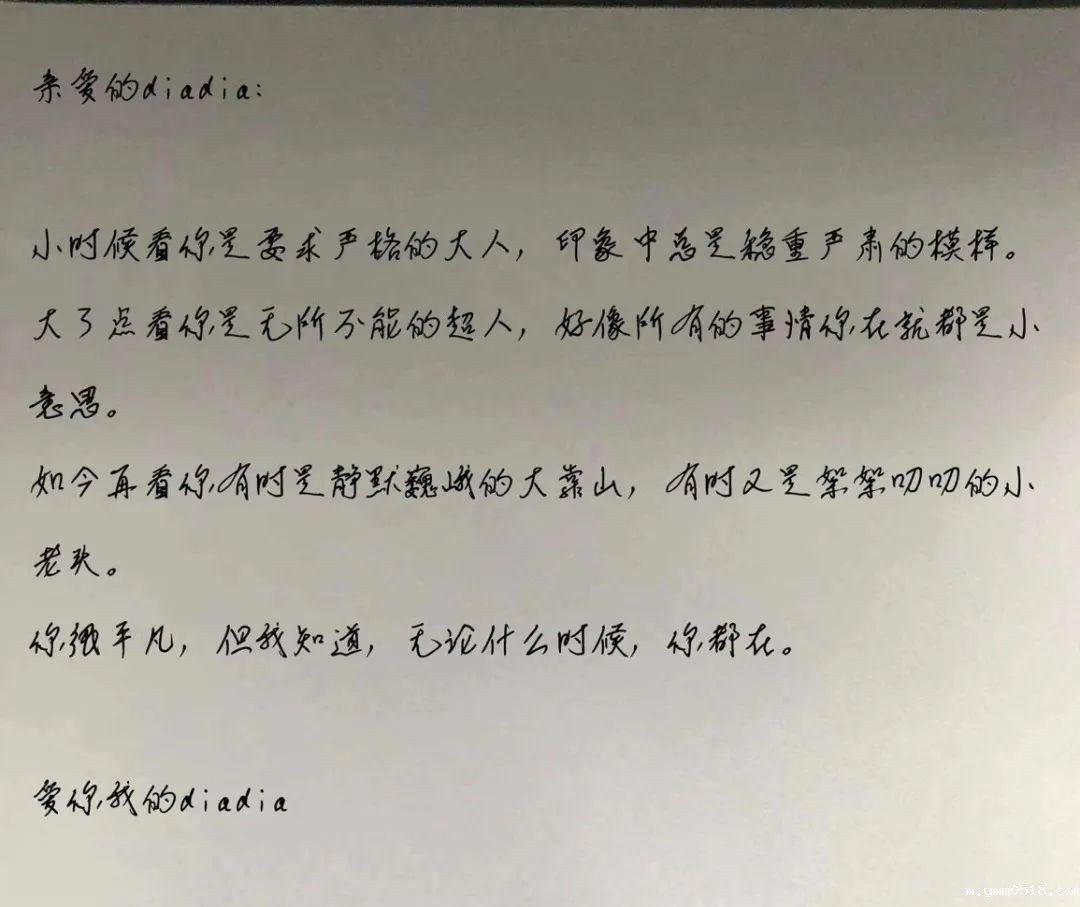 亲爱的diadia:
小时候看你是要求严格的大人，印象中总是稳重严肃的模样。
大了点看你是无所不能的超人，好像所有的事情你在就都是小
意思。
如今再看你有时是静默巍峨的大靠山，有时又是絮絮叨叨的小
老头。
你很平凡，但我知道，无论什么时候，你都在。
爱你,我的diadia
m.ymm0518.com